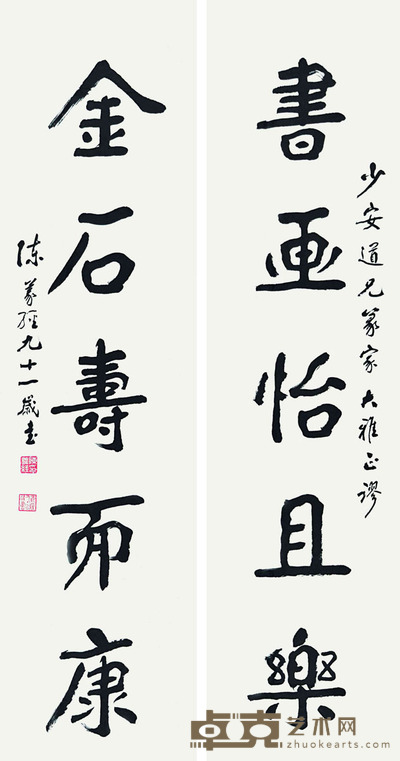 書画怡且樂
少安道兄篆家大雅正謬
金石壽而康
陳羲經九十一歲書
卓克艺术网
zhuokearts.com